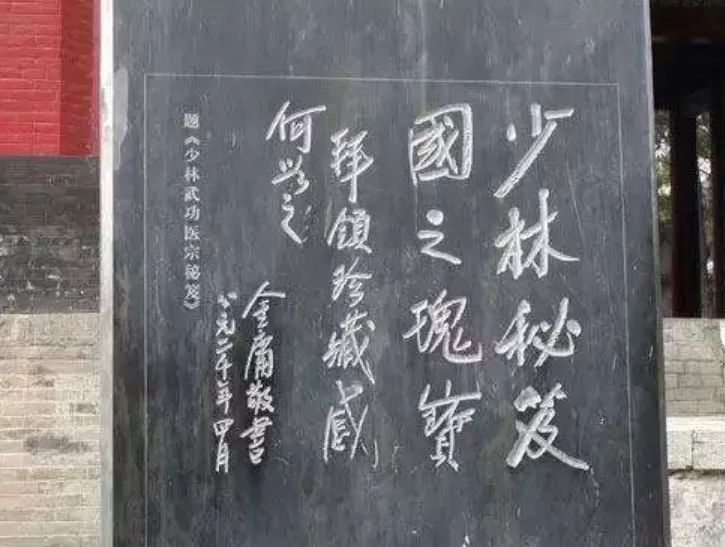 少林秘笈
國之瑰寶
拜領珍藏感
何如之
金庸敬書
公元二千年四月
题《少林武功医宗秘笈》